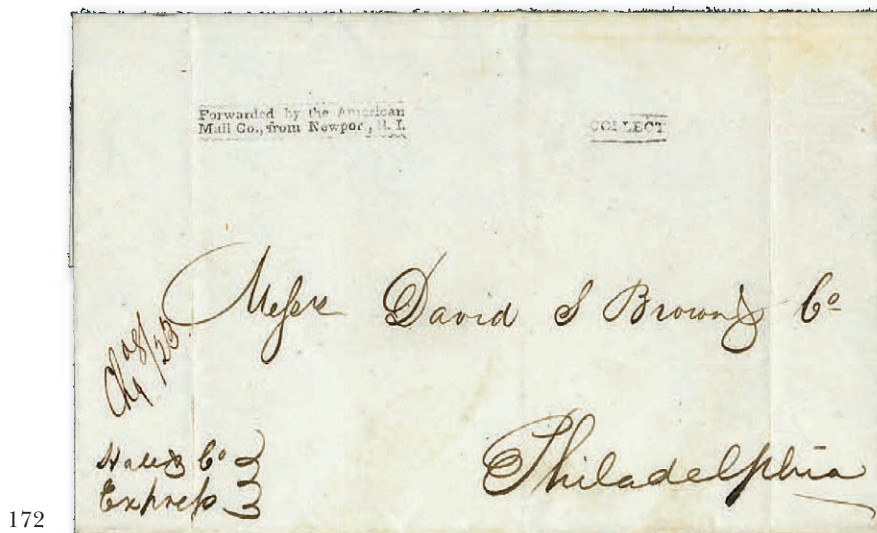 Forwarded by the American
Mail Co., from Newpor, R. I.
COLLECT
Messrs David S Brown & Co
Philadelphia
Hale & Co
Express
172